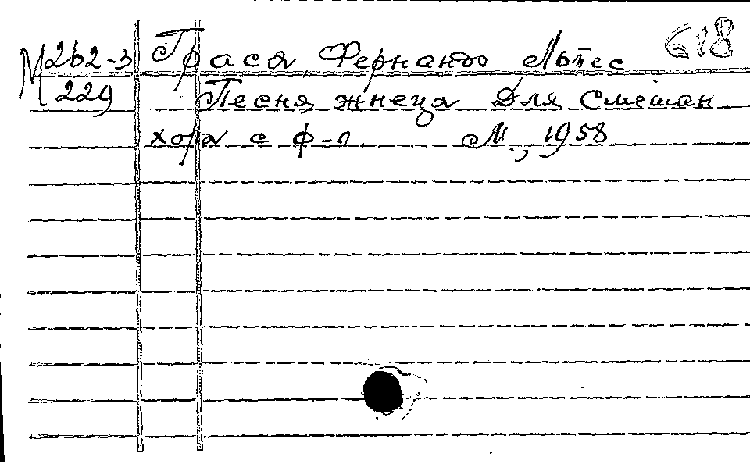 М262-3 Граса, Фернандо Лопес 618
229 Песня жнеца для смешан
хора с ф-п М., 1958